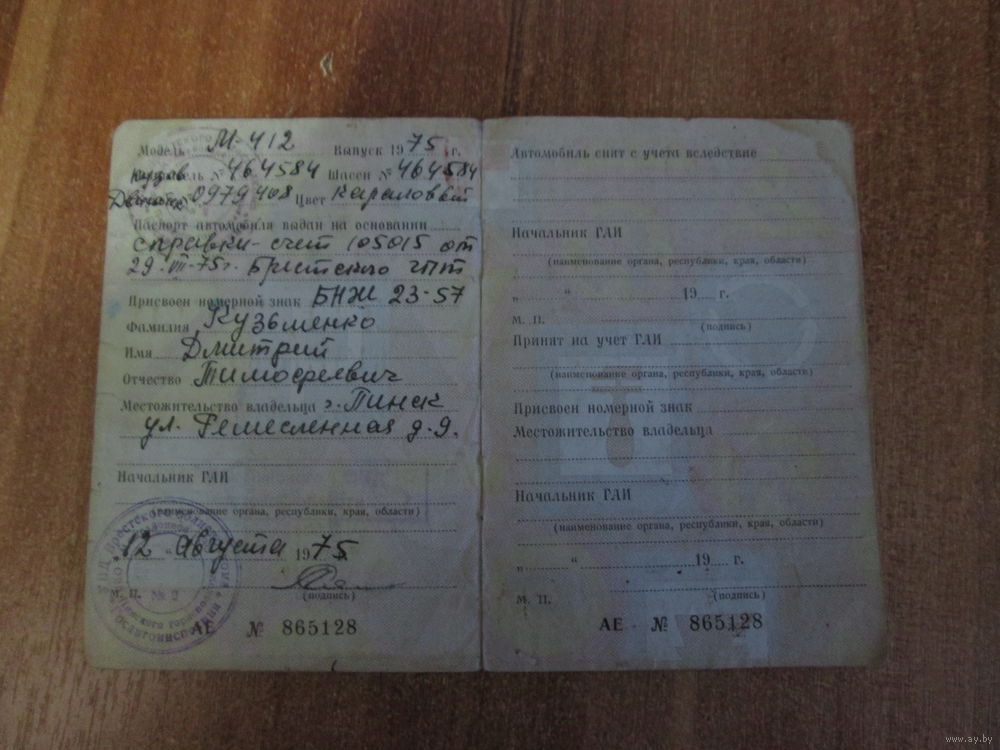 Модель М-412 Выпуск 1975 г.
кузов №464584 Шасси №464584
Двигатель 0979408 Цвет Караловый
Паспорт автомобиля выдан на основании
справки-счет 105015 от
29.VII-75г. Брестского
Присвоен номерной знак БНЖ 23-57
Фамилия Кузьменко
Имя Дмитрий
Отчество Тимофеевич
Местожительство владельца г. Пинск
ул. Ремесленная д-9.
Начальник ГАИ
(наименование органа, республики, края, области)
12 „ августа 1975
М. П. № 2
(подпись)
АЕ № 865128
Автомобиль снят с учета вследствие
Начальник ГАИ
(наименование органа, республики, края, области)
„ “ 19 г.
М. П. (подпись)
Принят на учет ГАИ
(наименование органа, республики, края, области)
Присвоен номерной знак
Местожительство владельца
Начальник ГАИ
(наименование органа, республики, края, области)
„ “ 19 г.
М. П. (подпись)
АЕ - № 865128
www.ay.by